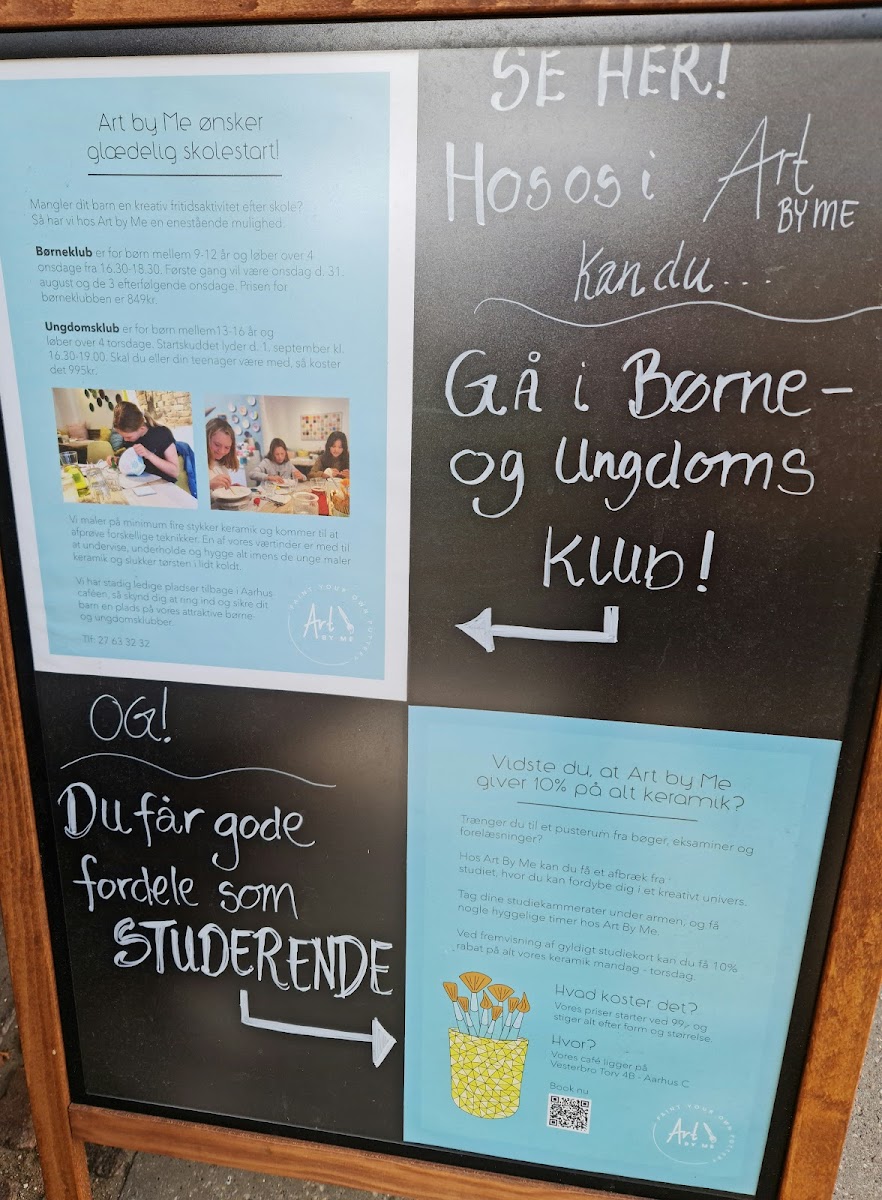 Art by Me ønsker
glædelig skolestart!
Mangler dit barn en kreativ fritidsaktivitet efter skole?
Så har vi hos Art by Me en enestående mulighed:
Børneklub er for børn mellem 9-12 år og løber over 4
onsdage fra 16.30-18.30. Første gang vil være onsdag d. 31.
august og de 3 efterfølgende onsdage. Prisen for
børneklubben er 849kr.
Ungdomsklub er for børn mellem13-16 år og
løber over 4 torsdage. Startskuddet lyder d. 1. september kl.
16.30-19.00. Skal du eller din teenager være med, så koster
det 995kr.
Vi maler på minimum fire stykker keramik og kommer til at
afprøve forskellige teknikker. En af vores værtinder er med til
at undervise, underholde og hygge alt imens de unge maler
keramik og slukker tørsten i lidt koldt.
Vi har stadig ledige pladser tilbage i Aarhus
caféen, så skynd dig at ring ind og sikre dit
barn en plads på vores attraktive børne-
og ungdomsklubber.
Tlf: 27 63 32 32
PAINT YOUR OWN POTTERY
Art
BY ME
SE HER!
Hos os i Art
BY ME
Kan du...
Gå i Børne-
og Ungdoms
Klub!
OG!
Du får gode
fordele som
STUDERENDE
Vidste du, at Art by Me
giver 10% på alt keramik?
Trænger du til et pusterum fra bøger, eksaminer og
forelæsninger?
Hos Art By Me kan du få et afbræk fra
studiet, hvor du kan fordybe dig i et kreativt univers.
Tag dine studiekammerater under armen, og få
nogle hyggelige timer hos Art By Me.
Ved fremvisning af gyldigt studiekort kan du få 10%
rabat på alt vores keramik mandag - torsdag.
Hvad koster det?
Vores priser starter ved 99,- og
stiger alt efter form og størrelse.
Hvor?
Vores café ligger på
Vesterbro Torv 4B - Aarhus C
Book nu
PAINT YOUR OWN POTTERY
Art
BY ME